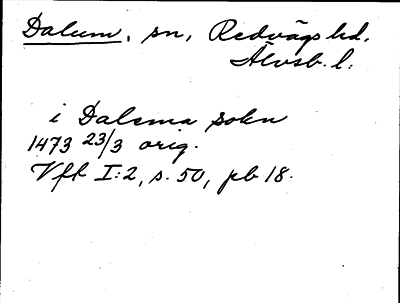 Dalum, sn, Redvägs hd.
Älvsb. l.
i Dalema sokn
1473 23/3 orig.
Vft I:2, s. 50, pb 18.